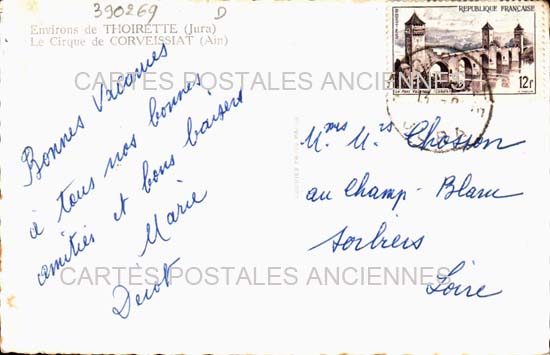 390269 D
Environs de THOIRETTE (Jura)
Le Cirque de CORVEISSIAT (Ain)
REPUBLIQUE FRANÇAISE
12F
CARTES POSTALES ANCIENNES
Bonnes Vacances
à tous nos bonnes
amitiés et bons baisers
Marie
au Champ-Blanc
Sorbiers
Loire
CARTES POSTALES ANCIENNES